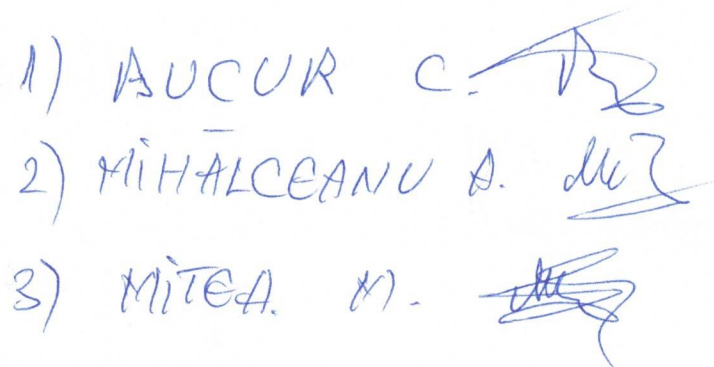 1) BUCUR C.
2) MIHĂLCEANU A.
3) MITEA. M.